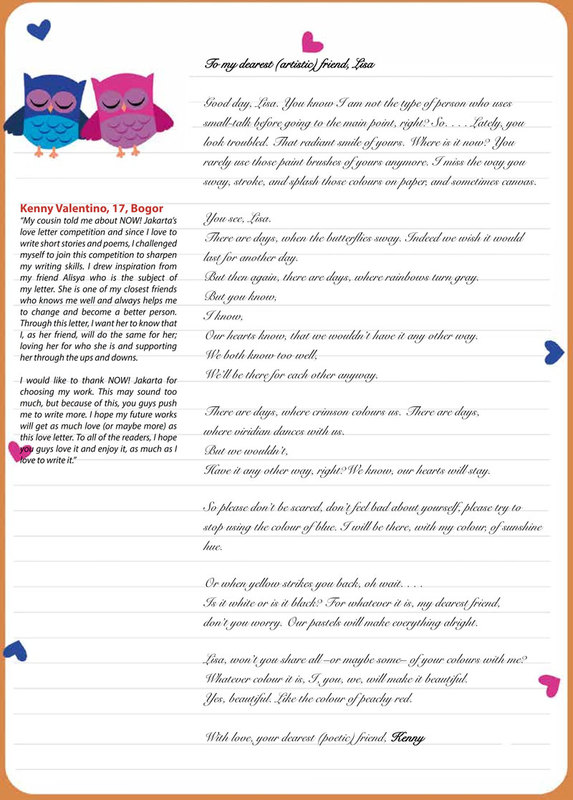 To my dearest (artistic) friend, Lisa
Good day, Lisa. You know I am not the type of person who uses
small-talk before going to the main point, right? So. . . . Lately, you
look troubled. That radiant smile of yours. Where is it now? You
rarely use those paint brushes of yours anymore. I miss the way you
sway, stroke, and splash those colours on paper, and sometimes canvas.
Kenny Valentino, 17, Bogor
“My cousin told me about NOW! Jakarta’s
love letter competition and since I love to
write short stories and poems, I challenged
myself to join this competition to sharpen
my writing skills. I drew inspiration from
my friend Alisya who is the subject of
my letter. She is one of my closest friends
who knows me well and always helps me
to change and become a better person.
Through this letter, I want her to know that
I, as her friend, will do the same for her;
loving her for who she is and supporting
her through the ups and downs.
I would like to thank NOW! Jakarta for
choosing my work. This may sound too
much, but because of this, you guys push
me to write more. I hope my future works
will get as much love (or maybe more) as
this love letter. To all of the readers, I hope
you guys love it and enjoy it, as much as I
love to write it.”
You see, Lisa.
There are days, when the butterflies sway. Indeed we wish it would
last for another day.
But then again, there are days, where rainbows turn gray.
But you know,
I know,
Our hearts know, that we wouldn’t have it any other way.
We both know too well,
We’ll be there for each other anyway.
There are days, where crimson colours us. There are days,
where viridian dances with us.
But we wouldn’t,
Have it any other way, right? We know, our hearts will stay.
So please don’t be scared, don’t feel bad about yourself, please try to
stop using the colour of blue. I will be there, with my colour, of sunshine
hue.
Or when yellow strikes you back, oh wait. . . .
Is it white or is it black? For whatever it is, my dearest friend,
don’t you worry. Our pastels will make everything alright.
Lisa, won’t you share all –or maybe some– of your colours with me?
Whatever colour it is, I, you, we, will make it beautiful.
Yes, beautiful. Like the colour of peachy red.
With love, your dearest (poetic) friend, Kenny